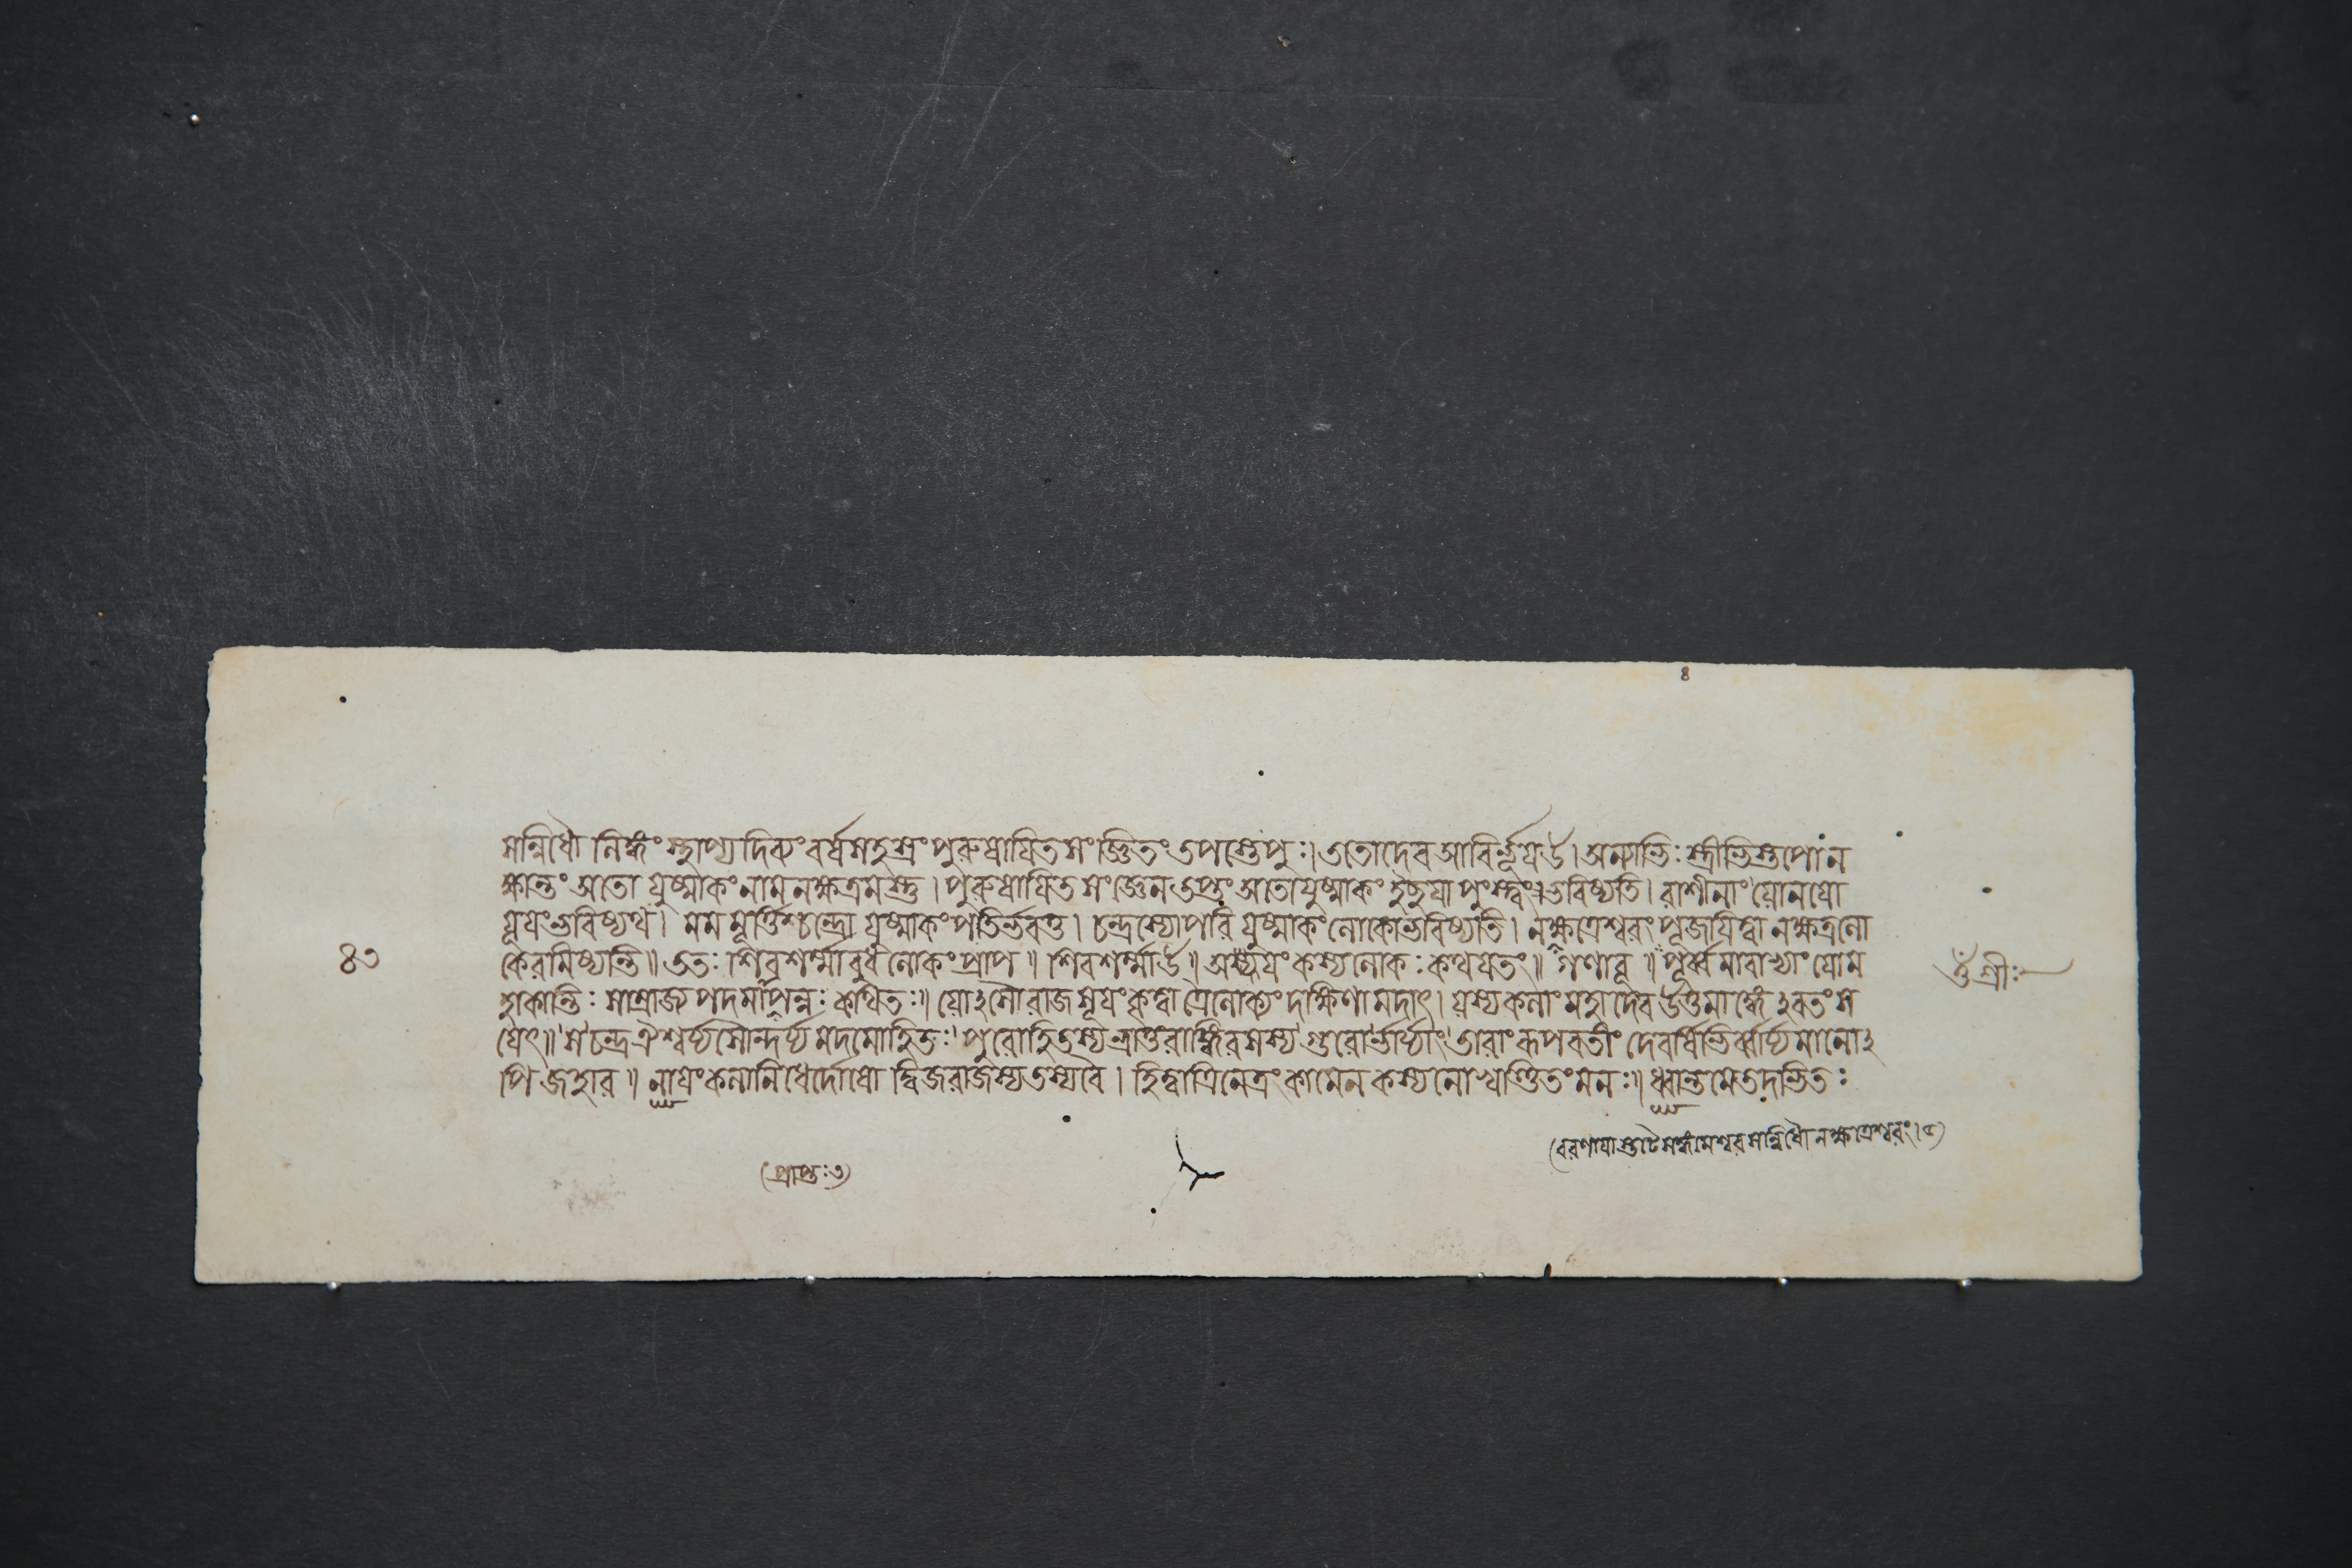 সন্নিধৌ লিঙ্গং স্থাপ্য দিব্যং বর্ষসহস্রং পুরুষায়িতসংজ্ঞিতং তপস্তেপুঃ। ততোদেব আবির্ভূয়াহ। অন্যাভিঃ স্ত্রীভিস্তপো ন
ক্ষান্তং অতো যুষ্মাকং নাম নক্ষত্রমস্তু। পুরুষায়িতসংজ্ঞেন তপ্তং অতো যুষ্মাকং ইচ্ছয়া পুংস্ত্বং ভবিষ্যতি। রাশীনাং যোনয়ো
যূয়ং ভবিষ্যথ। মম মূর্ত্তিশ্চন্দ্রো যুষ্মাকং পতির্ভবতু। চন্দ্রস্যোপরি যুষ্মাকং লোকো ভবিষ্যতি। নক্ষত্রেশ্বরং পূজয়িত্বা নক্ষত্রলো
কে রমিষ্যন্তি॥ ততঃ শিবশর্ম্মা বুধলোকং প্রাপ॥ শিবশর্ম্মাহ॥ অয়ং কস্য লোকঃ কথয়তং॥ গণাবূ॥ পূর্ব্বমাবাভ্যাং যো ম
হাকান্তিঃ সাম্রাজ্যপদমাপন্নঃ কথিতঃ॥ যোঽসৌ রাজসূয়ং কৃত্বা ত্রৈলোক্যং দক্ষিণামদাৎ। যস্য কলাং মহাদেব উত্তমাঙ্গেঽবতংস
য়েৎ॥ স চন্দ্র ঐশ্বর্য্যসৌন্দর্য্যমদমোহিতঃ পুরোহিতস্য ভ্রাতুরাঙ্গিরসস্য গুরোর্ভার্য্যাং তারাং রূপবতীং দেবর্ষিভির্ব্বার্য্যমানোঽ
পি জহার॥ নায়ং কলানিধের্দোষো দ্বিজরাজস্য তস্য বৈ। হিত্বা ত্রিনেত্রং কামেন কস্য নো খণ্ডিতং মনঃ॥ ধ্বান্তমেতদভিতঃ
৪৩
ওঁ শ্রীঃ
(বরণায়াস্তটে সঙ্গমেশ্বর সন্নিধৌ নক্ষত্রেশ্বরং।
(প্রাপ্তঃ
৪